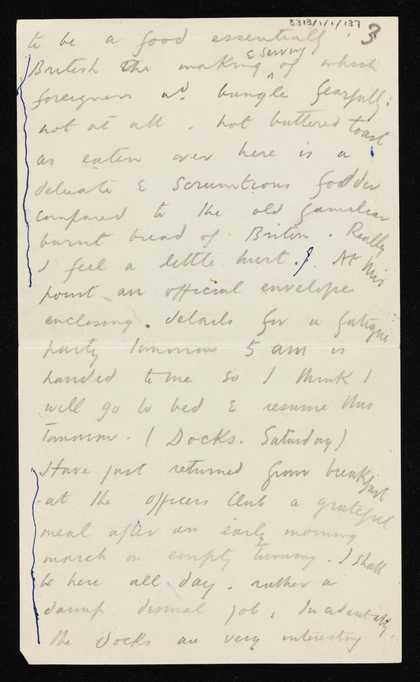 5313/1/1/137
3
to be a food essentially
British the making & serving of which
foreigners wd. bungle fearfully;
not at all. hot buttered toast
as eaten over here is a
delicate & scrumtious fodder
compared to the old familiar
burnt bread of Briton. Really
I feel a little hurt. At this
point an official envelope
enclosing details for a fatigue
party tomorrow 5 am is
handed to me so I think I
will go to bed & resume this
tomorrow. (Docks. Saturday)
Have just returned from breakfast
at the officers club a grateful
meal after an early morning
march on empty tummy. I shall
be here all day. rather a
damp dismal job, Incidentally
the docks are very interesting